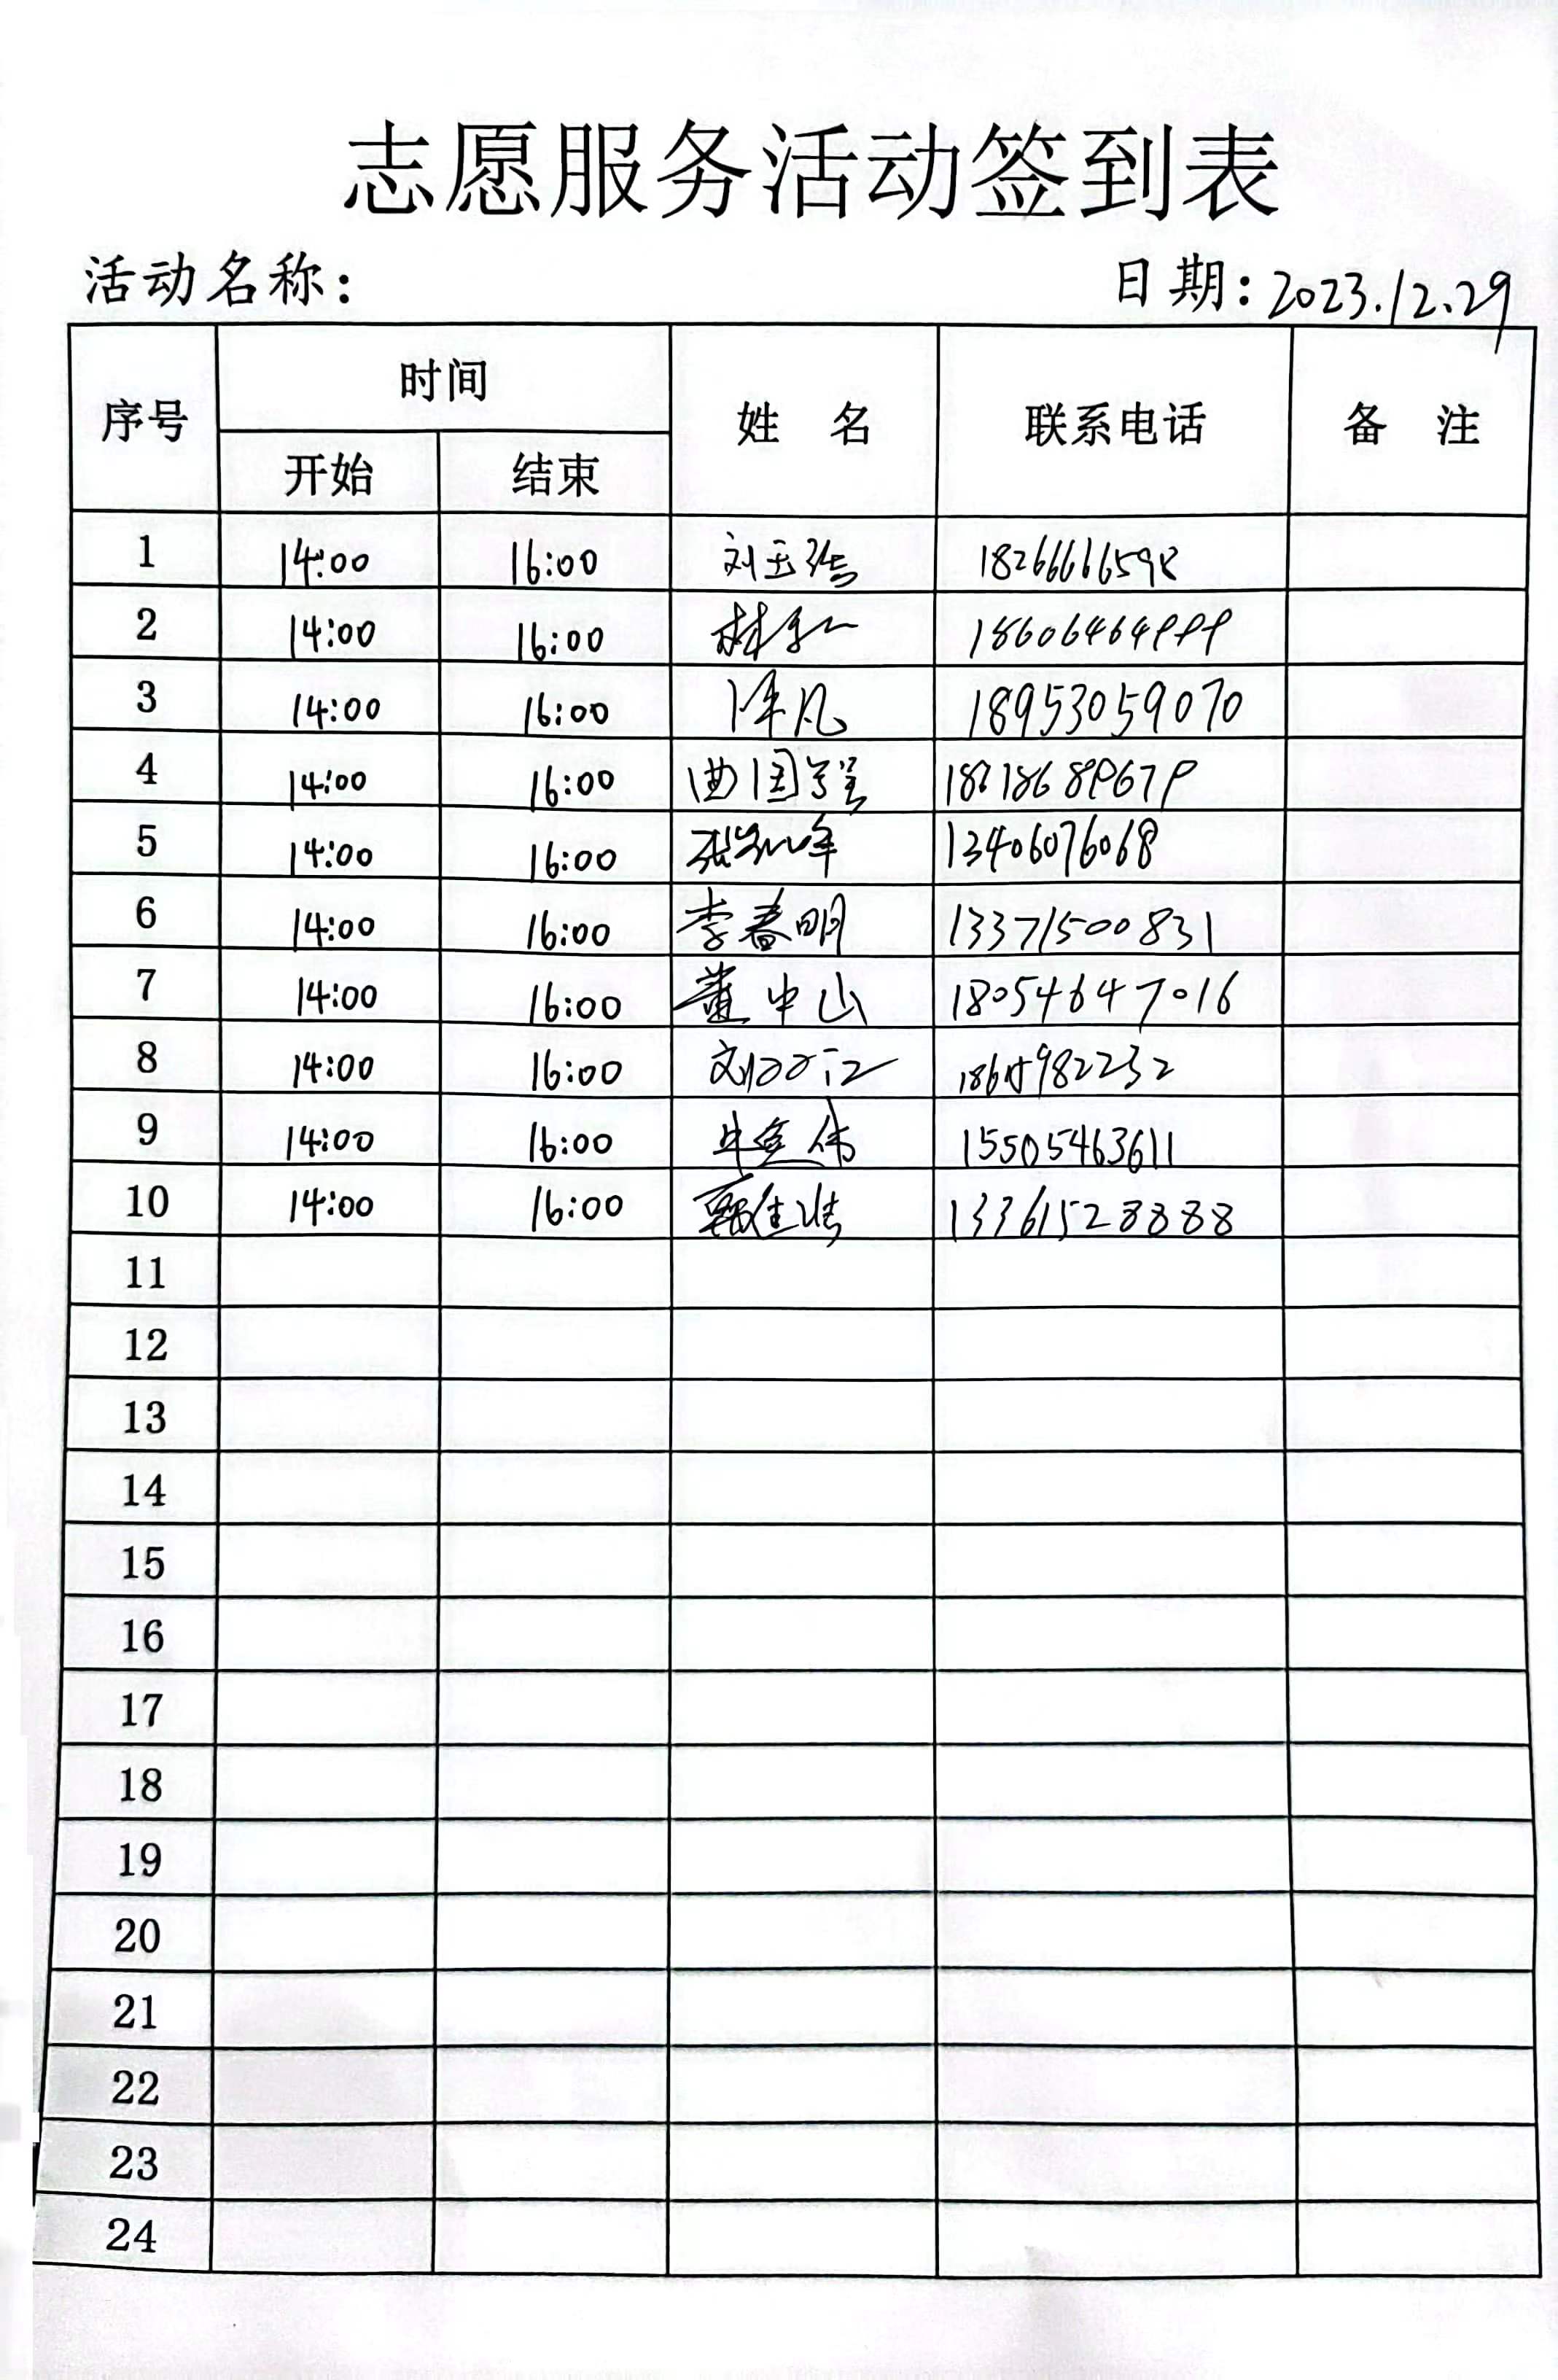 志愿服务活动签到表
活动名称： 日期：2023.12.29
序号 时间 姓 名 联系电话 备 注
开始 结束
1 14:00 16:00 刘玉 18266666598
2 14:00 16:00 林 18606464999
3 14:00 16:00 凡 18953059070
4 14:00 16:00 曲国 18218689679
5 14:00 16:00 张 13406076068
6 14:00 16:00 李春明 13371500831
7 14:00 16:00 董中山 18054647016
8 14:00 16:00 刘
9 14:00 16:00 伟 15505463611
10 14:00 16:00 13361528888
11
12
13
14
15
16
17
18
19
20
21
22
23
24